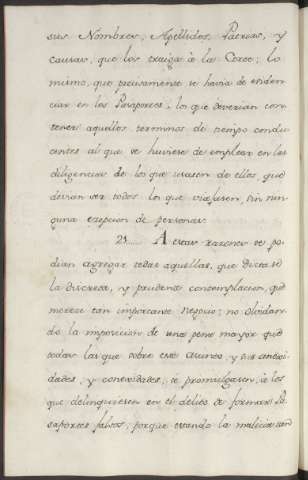 sus Nombres, Apellidos, Patrias, y
causas, que los traiga à la Corte; lo
mismo, que precisamente se havia de eviden-
ciar en los Pasaportes; lo que deverian con-
tener aquellos terminos de tiempo condu-
centes al que se huviese de emplear en las
diligencias de los que usasen de ellos, que
devian ser todos los que viajasen, sin nin-
guna exepcion de personas.
21. A estas razones se po-
dian agregar todas aquellas, que dicta se
la discreta, y prudente contemplacion, que
merece tan importante negocio; no olvidan-
do la imposicion de una pena mayor que
todas las que sobre este asunto, y sus
dades, y conexidades, se promulgasen, à los
que delinquiesen en el delito de formar Pa-
saportes falsos; porque estando la malicia